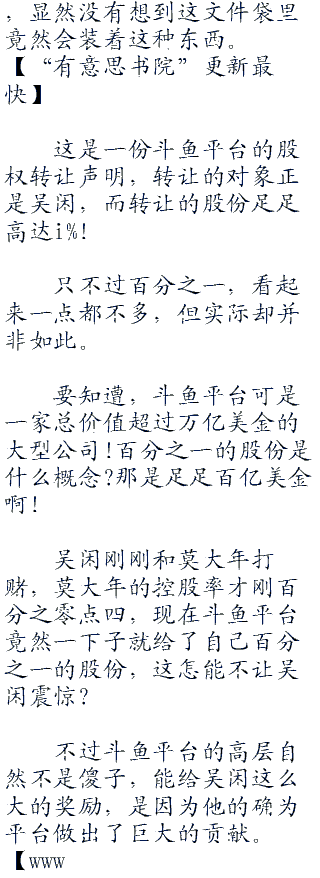 ，显然没有想到这文件袋里
竟然会装着这种东西。
【“有意思书院”更新最
快】
这是一份斗鱼平台的股
权转让声明，转让的对象正
是吴闲，而转让的股份足足
高达i%！
只不过百分之一，看起
来一点都不多，但实际却并
非如此。
要知遭，斗鱼平台可是
一家总价值超过万亿美金的
大型公司！百分之一的股份是
什么概念？那是足足百亿美金
啊！
吴闲刚刚和莫大年打
赌，莫大年的控股率才刚百
分之零点四，现在斗鱼平台
竟然一下子就给了自己百分
之一的股份，这怎能不让吴
闲震惊？
不过斗鱼平台的高层自
然不是傻子，能给吴闲这么
大的奖励，是因为他的确为
平台做出了巨大的贡献。
【www